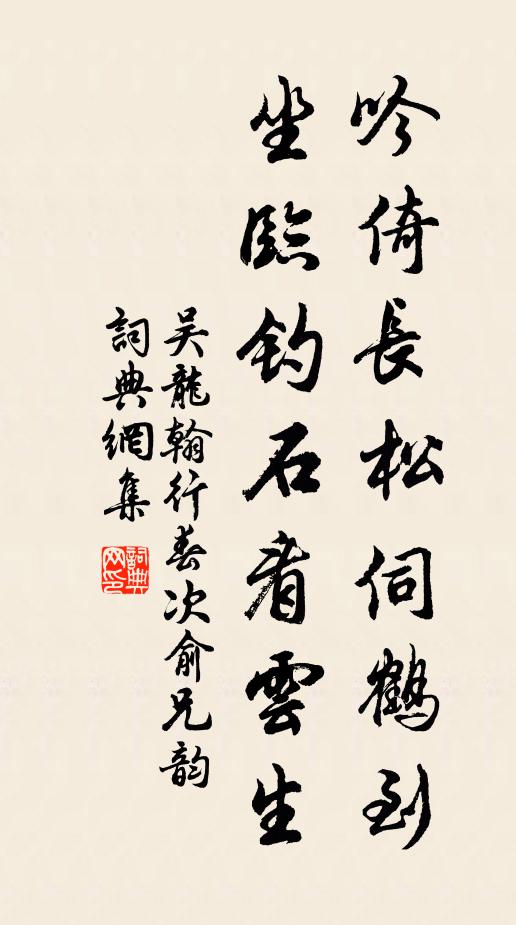 吟倚長松伺鶴到
坐臨釣石看雲生
吴龍翰行春次俞兄韵
詞典網集
詞典网印